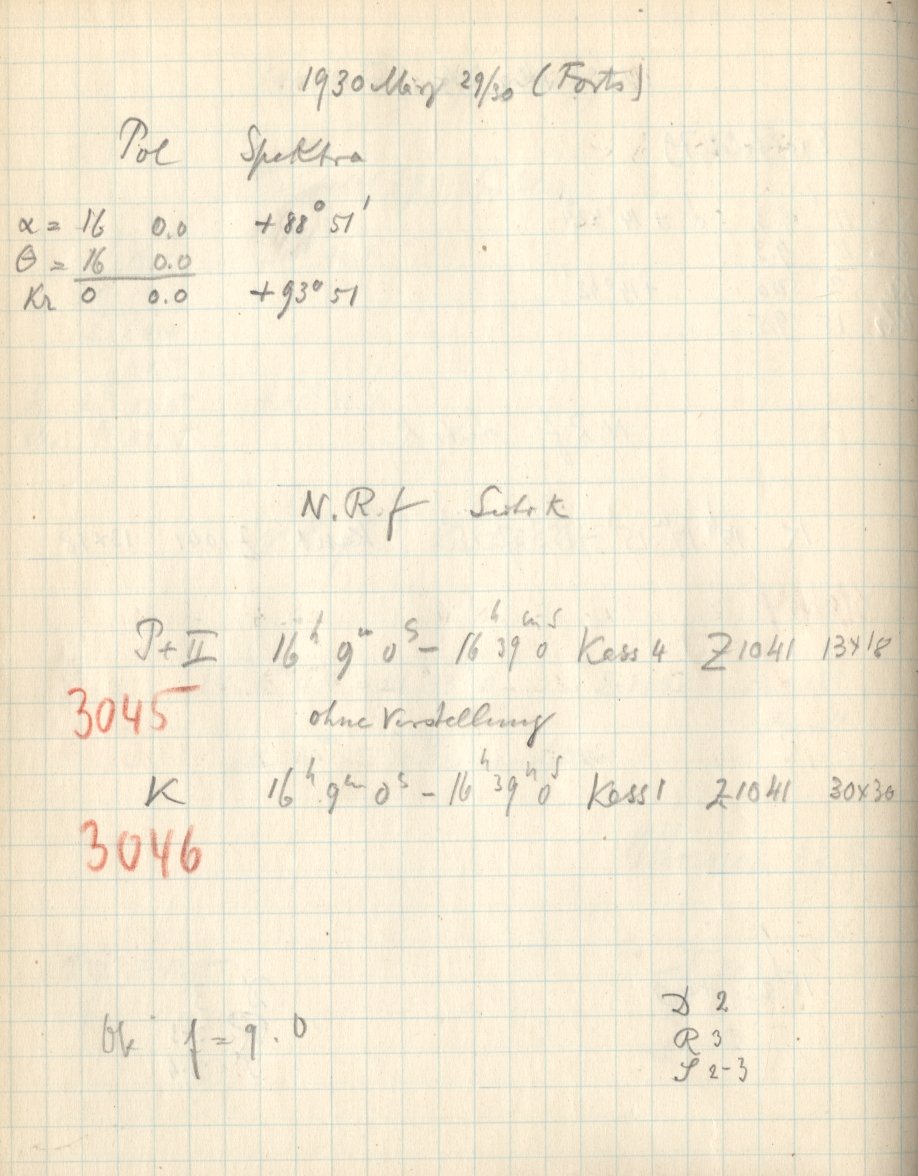 1930 März 29/30 (Forts)
Pol Spektra
α = 16 0.0 +88° 51'
θ = 16 0.0
Kr 0 0.0 +93° 51
N.R.f
P+II 16ʰ 9ᵐ 0ˢ – 16ʰ 39ᵐ 0ˢ Kass 4 Z 1041 13×18
3045 ohne Verstellung
K 16ʰ 9ᵐ 0ˢ – 16ʰ 39ᵐ 0ˢ Kass 1 Z 1041 30×30
3046
f = 9.0
D 2
R 3
S 2-3